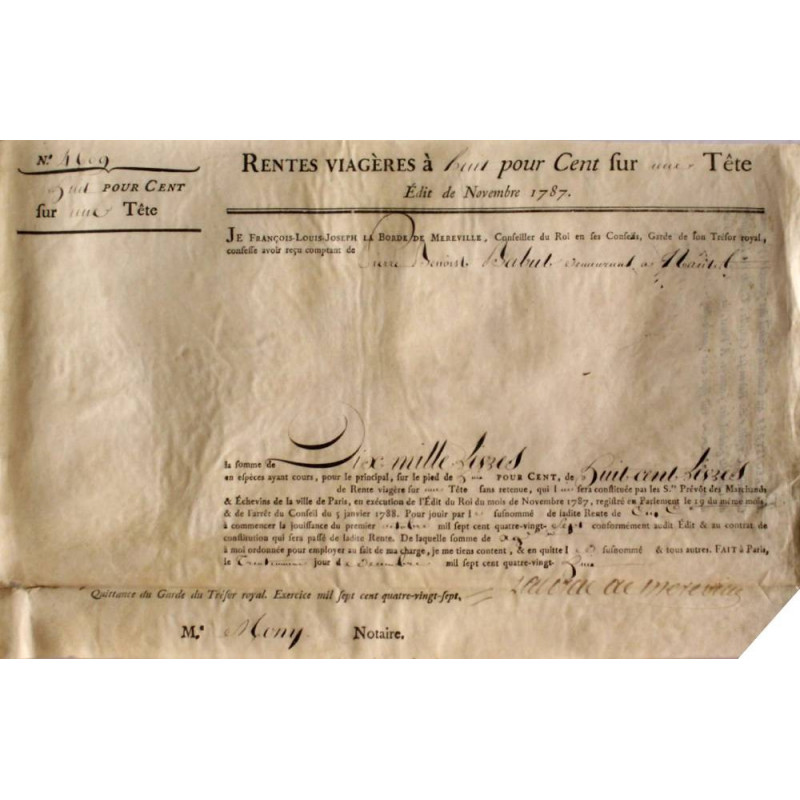 N.º
RENTES VIAGÈRES à huit pour Cent sur une Tête
huit POUR CENT
Édit de Novembre 1787.
sur une Tête
JE FRANÇOIS-LOUIS-JOSEPH LA BORDE DE MEREVILLE, Conseiller du Roi en ses Conseils, Garde de son Trésor royal,
confesse avoir reçu comptant de Pierre Benoist Babut demeurant à
la somme de Dix mille Livres
en espèces ayant cours, pour le principal, sur le pied de huit POUR CENT, de Huit cent Livres
de Rente viagère sur une Tête sans retenue, qui l sera constituée par les S.rs Prévôt des Marchands
& Échevins de la ville de Paris, en exécution de l'Édit du Roi du mois de Novembre 1787, registré en Parlement le 19 du même mois,
& de l'arrêt du Conseil du 5 janvier 1788. Pour jouir par l susnommé de ladite Rente de
à commencer la jouissance du premier octobre mil sept cent quatre-vingt-sept conformément audit Édit & au contrat de
constitution qui sera passé de ladite Rente. De laquelle somme de
à moi ordonnée pour employer au fait de ma charge, je me tiens content, & en quitte l susnommé & tous autres. FAIT à Paris,
le jour de Décembre mil sept cent quatre-vingt-huit
Quittance du Garde du Trésor royal. Exercice mil sept cent quatre-vingt-sept. Laborde de mereville
M.e Mony Notaire.